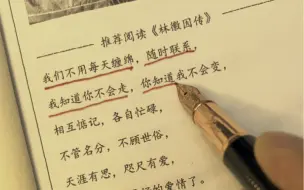 推荐阅读《林徽因传》
我们不用每天缠绵，随时联系，
我知道你不会走，你知道我不会变，
相互惦记，各自忙碌，
不管名分，不顾世俗，
天涯有思，咫尺有爱，
的爱情了。